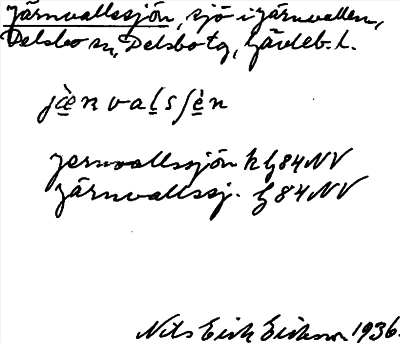 Järnvallssjön, sjö i Järnvallen,
Delsbo sn, Delsbo tg, Gävleb. l.
jæ̀nvalsʃèn
Jernvallssjön k G84NV
Järnvallssj. G84NV
Nils Eirik Eriksson 1936.